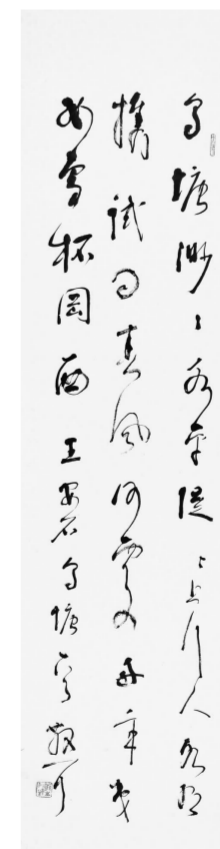 烏塘渺〻綠平堤〻上行人各有
攜試問春風何處好辛夷
如雪柘岡西 王安石烏塘